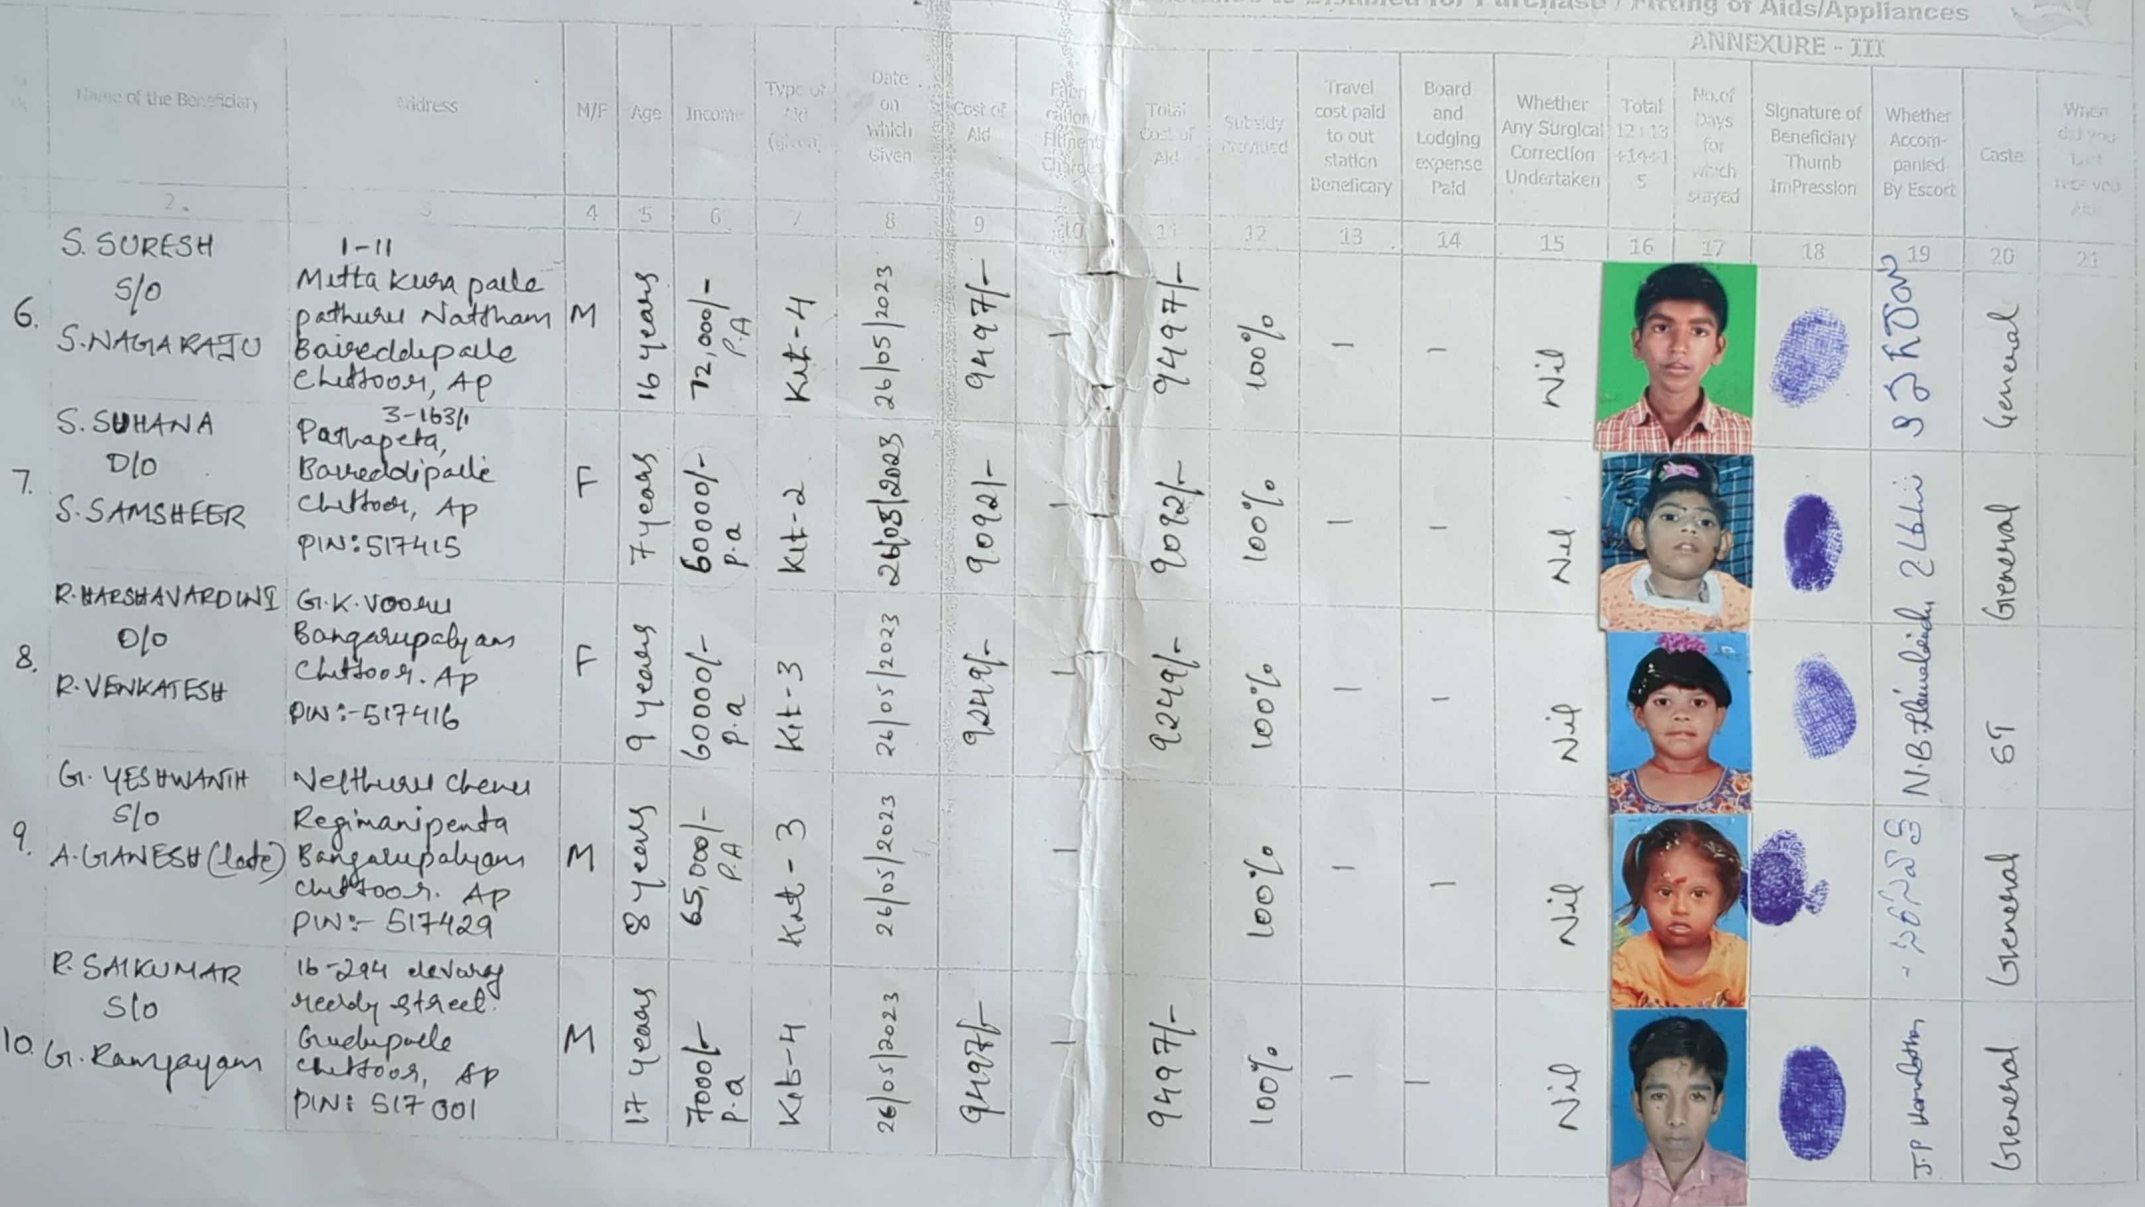 Disabled for Purchase / Fitting of Aids/Appliances
ANNEXURE - III
Name of the Beneficiary
Address
M/F
Age
Income
Type of
Aid
(given)
Date
on
which
Given
Cost of
Aid
Fabri
cation/
Fitment
Charges
Total
Cost of
Aid
Subsidy
Provided
Travel
cost paid
to out
station
Beneficary
Board
and
Lodging
expense
Paid
Whether
Any Surgical
Correction
Undertaken
Total
12+13
+14+1
5
No.of
Days
for
which
stayed
Signature of
Beneficiary
Thumb
ImPression
Whether
Accom-
panied
By Escort
Caste
When
did you
2. 3 4 5 6 7 8 9 10 11 12 13 14 15 16 17 18 19 20 21
6.
S. SURESH
S/O
S.NAGARAJU
1-11
Mitta Kura palle
pathuru Nattham
Baireddipalle
Chittoor, AP
M
16 years
72,000/-
P.A
Kit-4
26/05/2023
9497/-
-
9497/-
100%
-
-
Nil
General
7.
S. SUHANA
D/O
S. SAMSHEER
3-163/1
Pathapeta,
Baireddipalle
Chittoor, AP
PIN:517415
F
7 years
60000/-
p.a
Kit-2
26/05/2023
9092/-
-
9092/-
100%
-
-
Nil
General
8.
R.HARSHAVARDINI
D/O
R.VENKATESH
G.K.Vooru
Bangarupalyam
Chittoor. AP
PIN:-517416
F
9 years
60000/-
p.a
Kit-3
26/05/2023
9249/-
-
9249/-
100%
-
-
Nil
ST
9.
G. YESHWANTH
S/O
A.GANESH(late)
Nelthuru Cheru
Regimanipenta
Bangarupalyam
Chittoor. AP
PIN:- 517429
M
8 years
65,000/-
P.A
Kit-3
26/05/2023
-
100%
-
-
Nil
General
10.
R. SAIKUMAR
S/O
G. Ramjayam
16-294 devaraj
reddy street.
Gudupalle
Chittoor, AP
PIN: 517001
M
17 years
7000/-
p.a
Kit-4
26/05/2023
9497/-
-
9497/-
100%
-
-
Nil
General